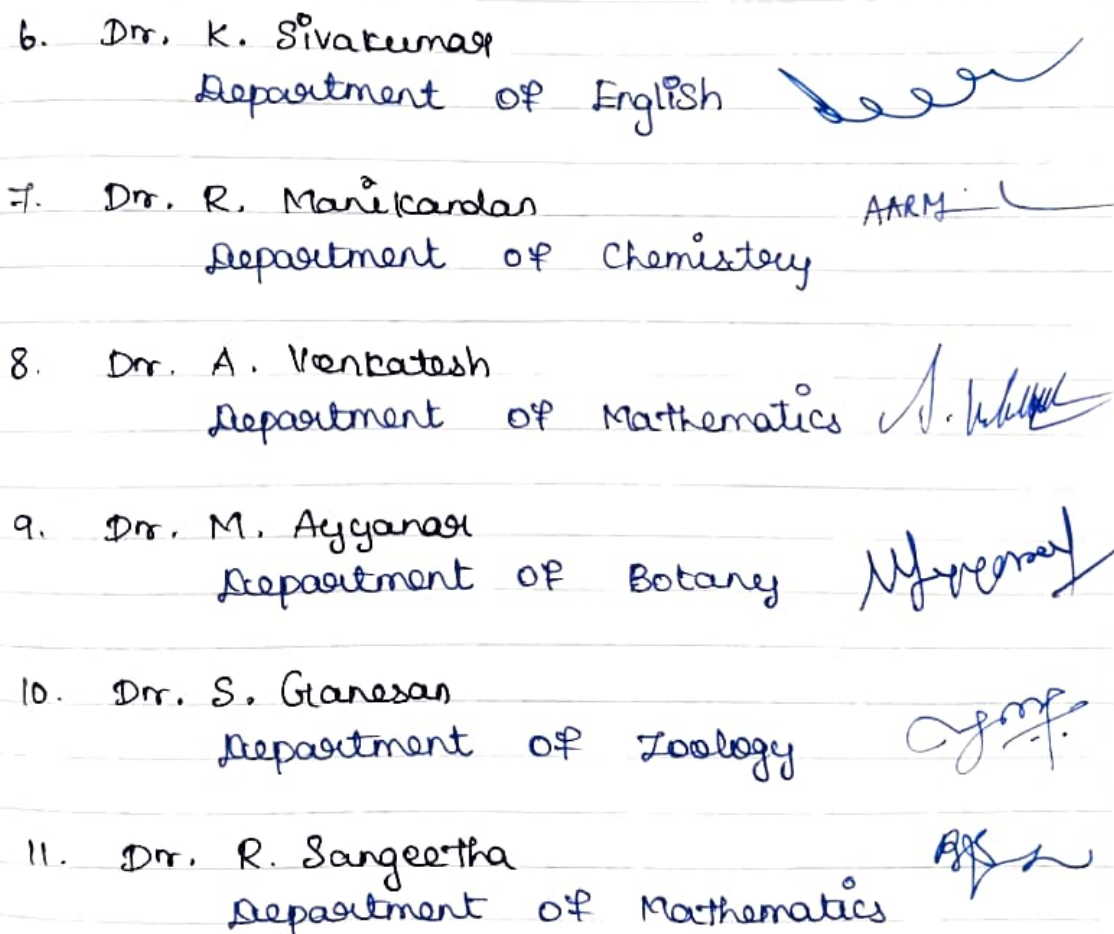 6. Dr. K. Sivakumar
Department of English
7. Dr. R. Manikandan
Department of Chemistry
AARM
8. Dr. A. Venkatesh
Department of Mathematics
9. Dr. M. Ayyanar
Department of Botany
10. Dr. S. Ganesan
Department of Zoology
11. Dr. R. Sangeetha
Department of Mathematics